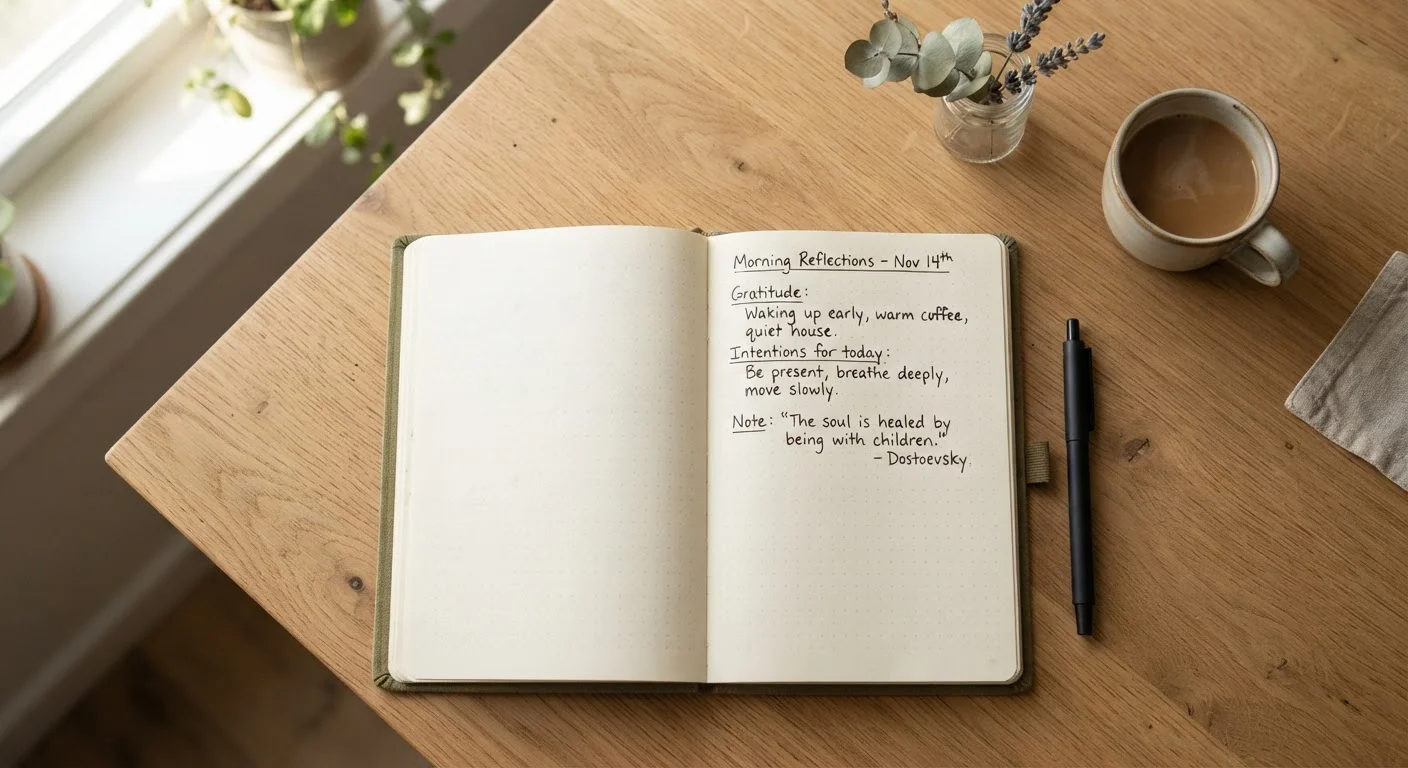 Morning Reflections - Nov 14th
Gratitude:
Waking up early, warm coffee,
quiet house.
Intentions for today:
Be present, breathe deeply,
move slowly.
Note: "The soul is healed by
being with children."
- Dostoevsky.